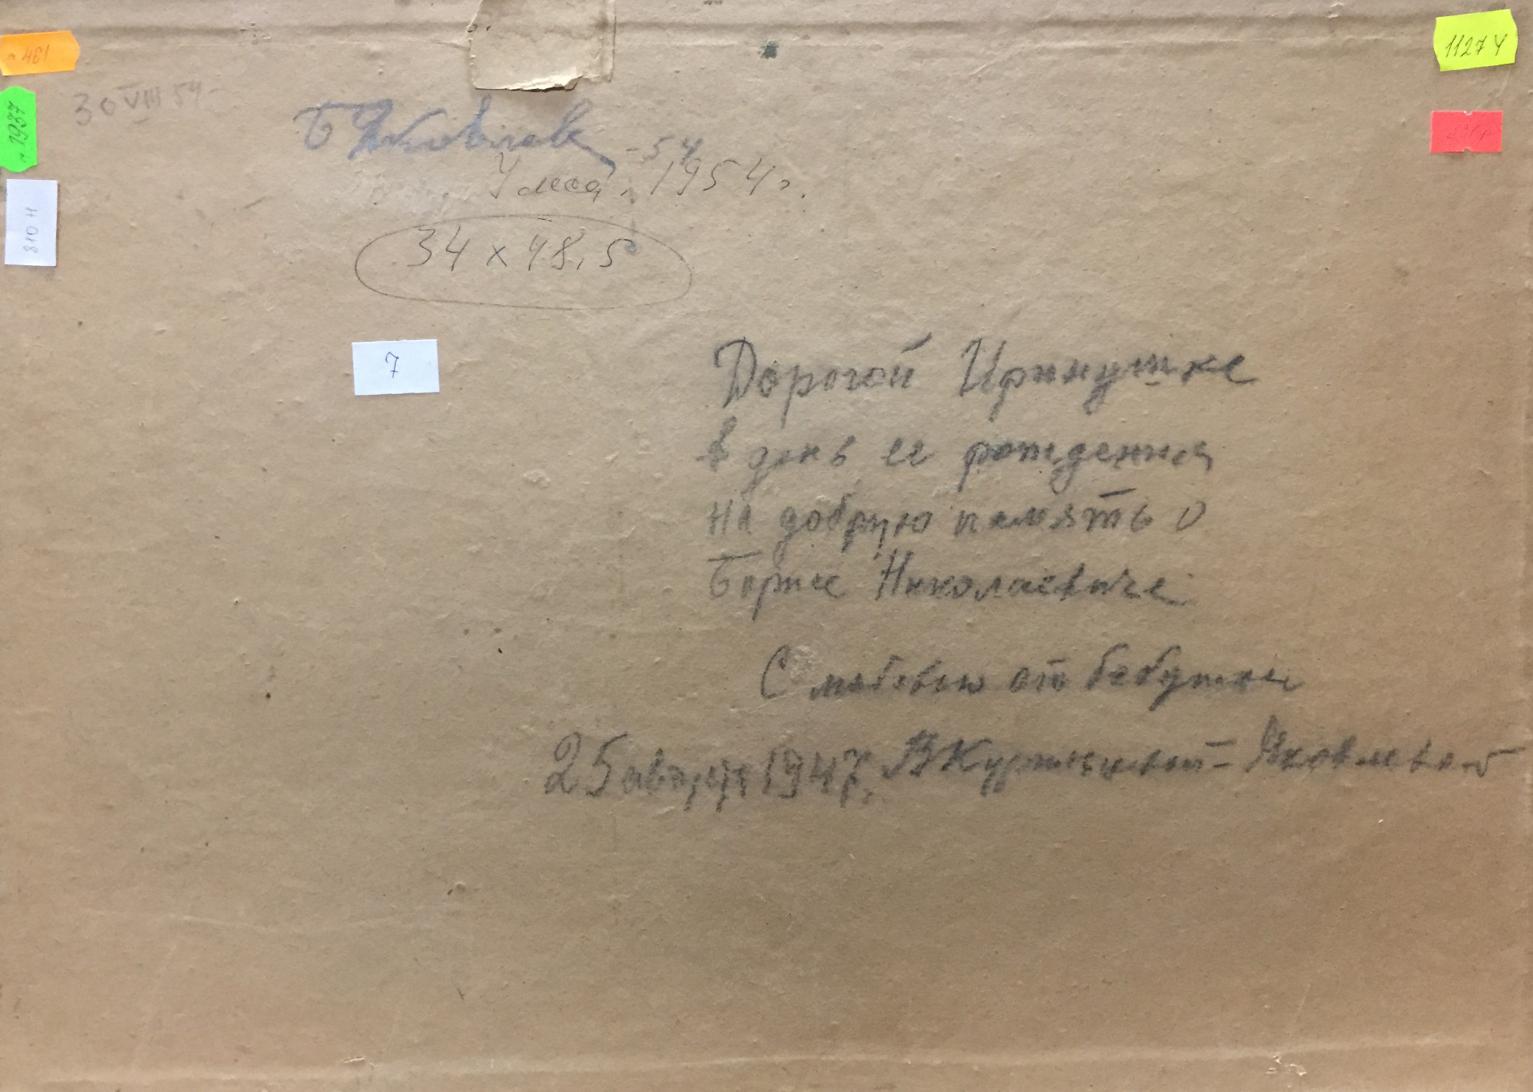 461
1127 Ч
30 VIII 54
1937
Б Яковлев -54
У леса. 1954 г.
810 Н
34 x 48,5
7
Дорогой Иринушке
в день ее рождения
на добрую память о
Борисе Николаевиче
С любовью от бабушки
25 августа 1947г. В -Яковлевой